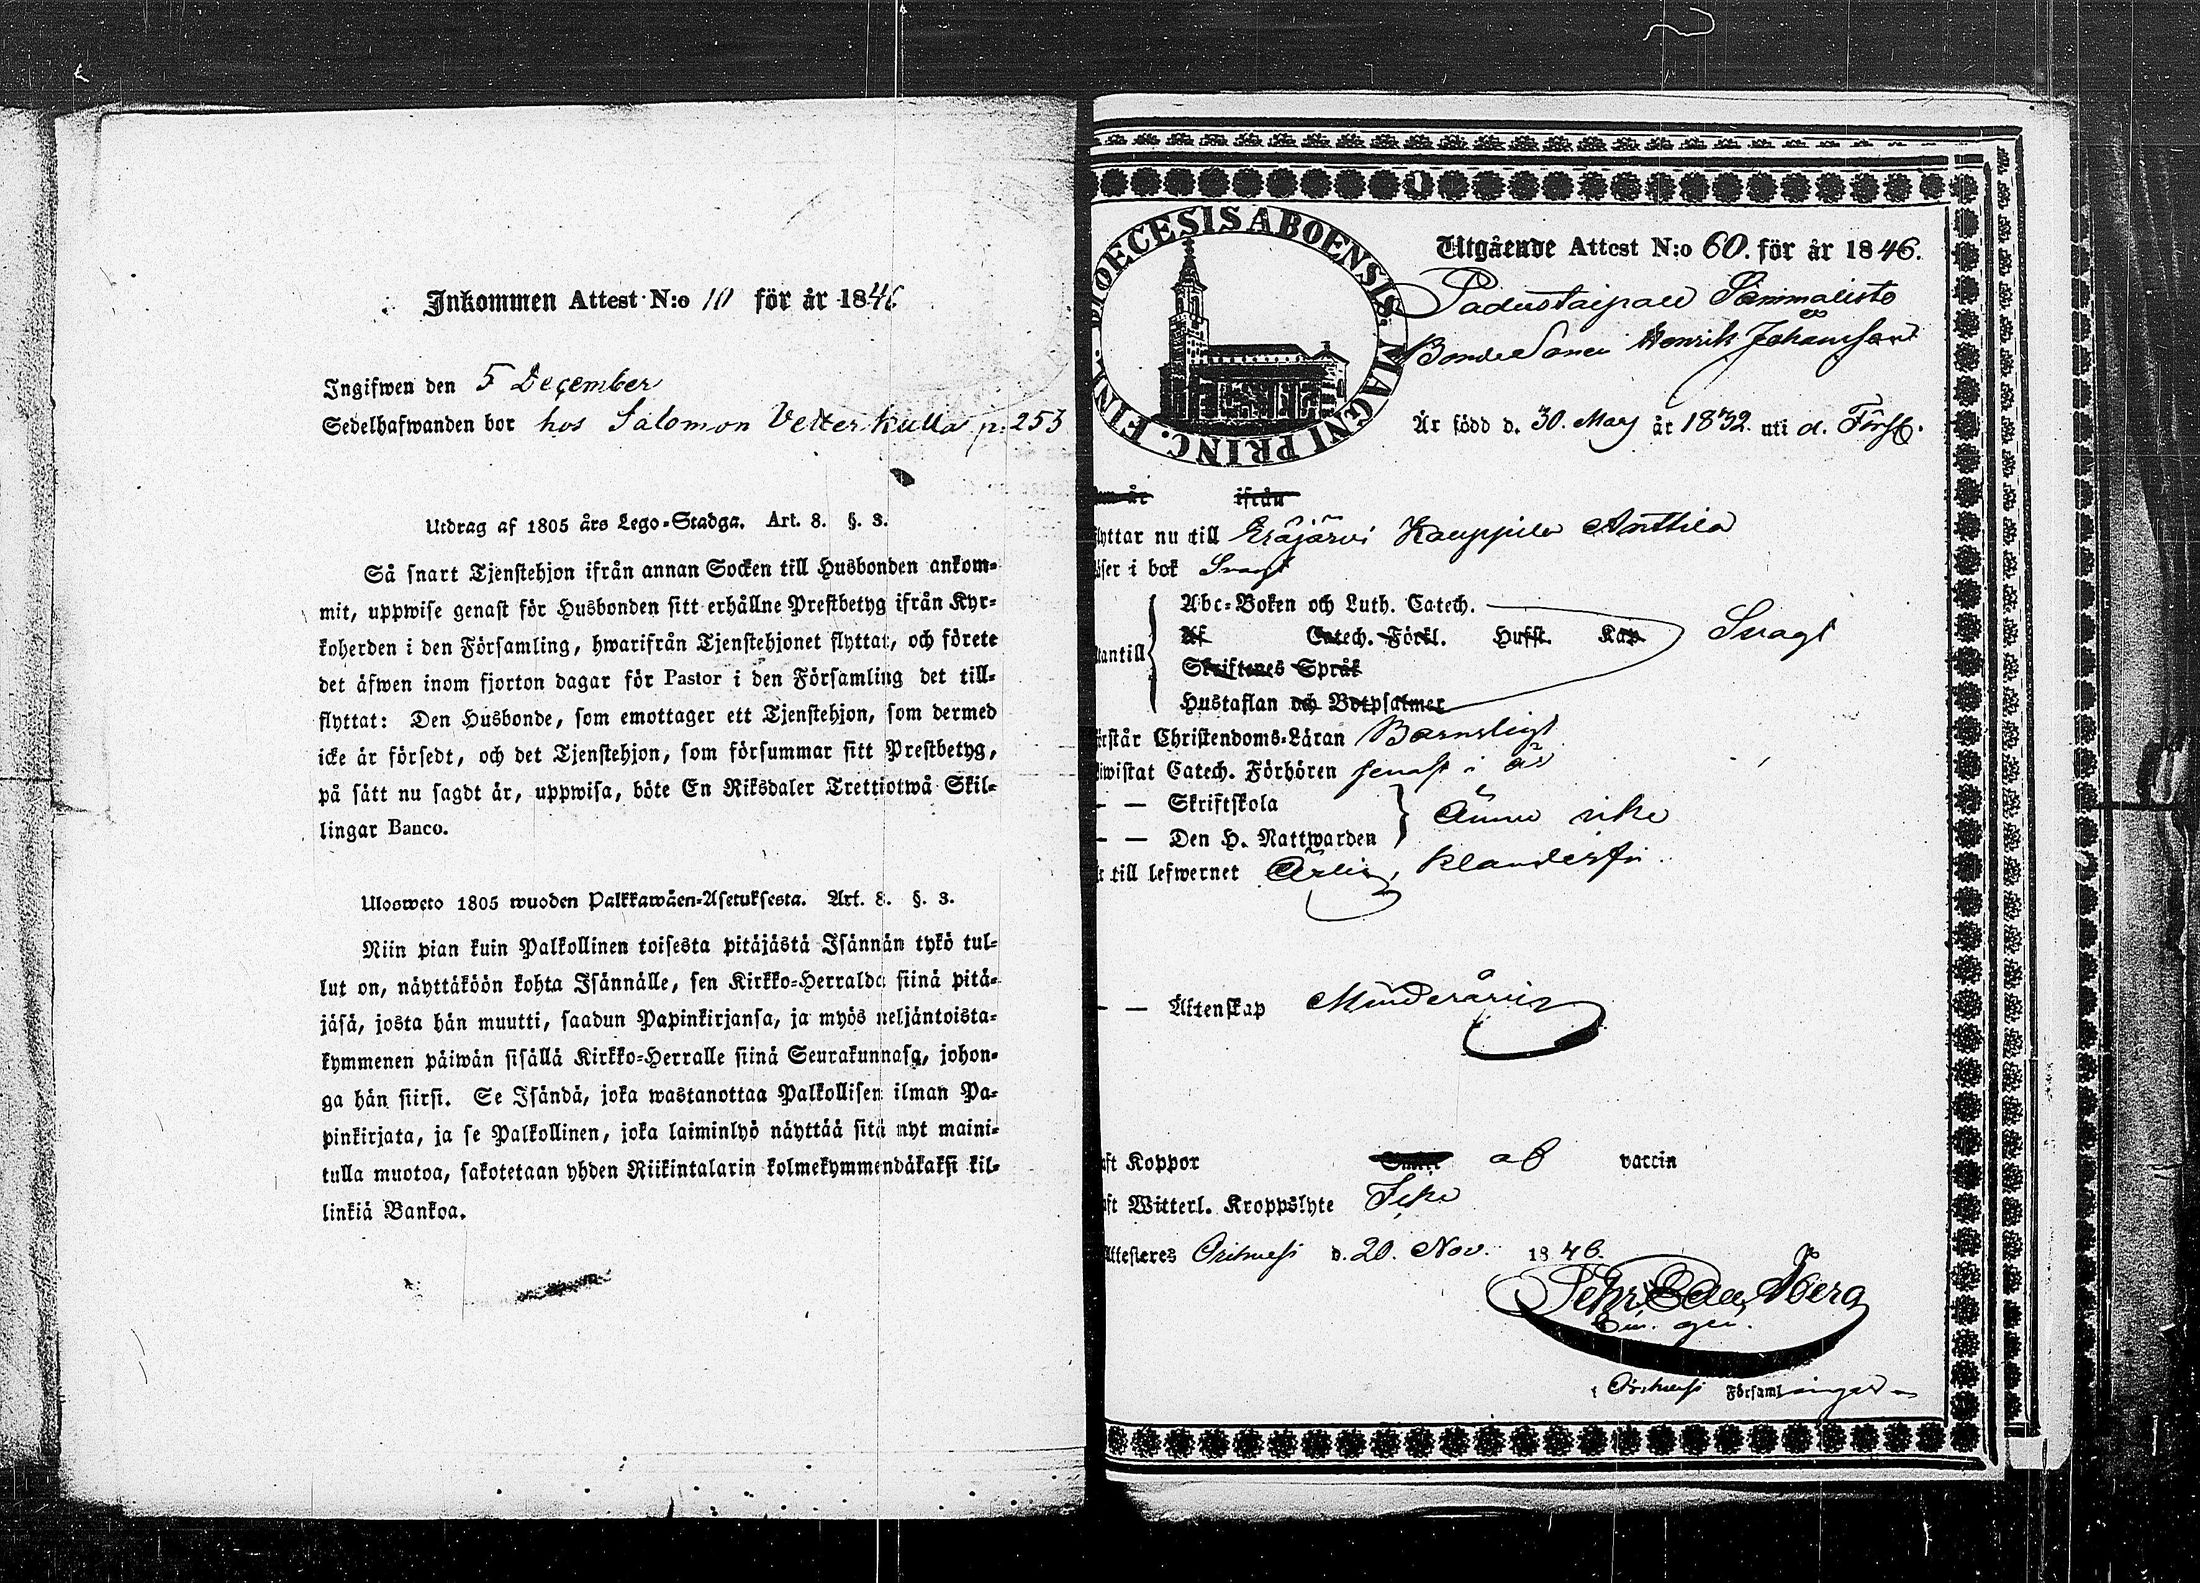 Inkommen Attest N:o 10 för år 1846
Ingifwen den 5 December
Sedelhafwanden bor hos Salomon Vetterkulla p. 253
Utdrag af 1805 års Lego-Stadga. Art. 8. §. 3.
Så snart Tjenstehjon ifrån annan Socken till Husbonden ankom-
mit, uppwise genast för Husbonden sitt erhållne Prestbetyg ifrån Kyr-
koherden i den Församling, hwarifrån Tjenstehjonet flyttat, och förete
det äfwen inom fjorton dagar för Pastor i den Församling det till-
flyttat: Den Husbonde, som emottager ett Tjenstehjon, som dermed
icke är försedt, och det Tjenstehjon, som försummar sitt Prestbetyg,
på sätt nu sagdt är, uppwisa, böte En Riksdaler Trettiotwå Skil-
lingar Banco.
Ulosweto 1805 wuoden Palkkawäen-Asetuksesta. Art. 8. §. 3.
Niin pian kuin Palkollinen toisesta pitäjästä Isännän tykö tul-
lut on, näyttäköön kohta Isännälle, sen Kirkko-Herralda siinä pitä-
jäsä, josta hän muutti, saadun Papinkirjansa, ja myös neljäntoista-
kymmenen päiwän sisällä Kirkko-Herralle siinä Seurakunnasa, johon-
ga hän siirsi. Se Isändä, joka wastanottaa Palkollisen ilman Pa-
pinkirjata, ja se Palkollinen, joka laiminlyö näyttää sitä nyt maini-
tulla muotoa, sakotetaan yhden Riikintalarin kolmekymmendäkaksi kil-
linkiä Bankoa.
DIOECESIS ABOENSIS. MAGNI PRINC. FINL.
Utgående Attest N:o 60. för år 1846.
Padustaipale
Bonde Sonen Henrik Johansson
Är född d. 30. Maij år 1832 uti d. Förs.
år ifrån
flyttar nu till Eräjärvi Kauppila Anttila
läser i bok Svagt
Abc-Boken och Luth. Catech.
Af Catech. Förkl. Husst. Kap Svagt
utantill Skriftenes Språk
Hustaflan och Botpsalmer
förstår Christendoms-Läran Barnsligt
biwistat Catech. Förhören senast i år
— — Skriftskola
— — Den H. Nattwarden Ännu icke
är till lefwernet Ärlig, klanderfri
— — Äktenskap Minderårig
haft Koppor af vaccin
haft Witterl. Kroppslyte Icke
Attesteres Orihvesi d. 20. Nov. 1846.
Fehr. Edu. Åberg
i Orihvesi Församlingar